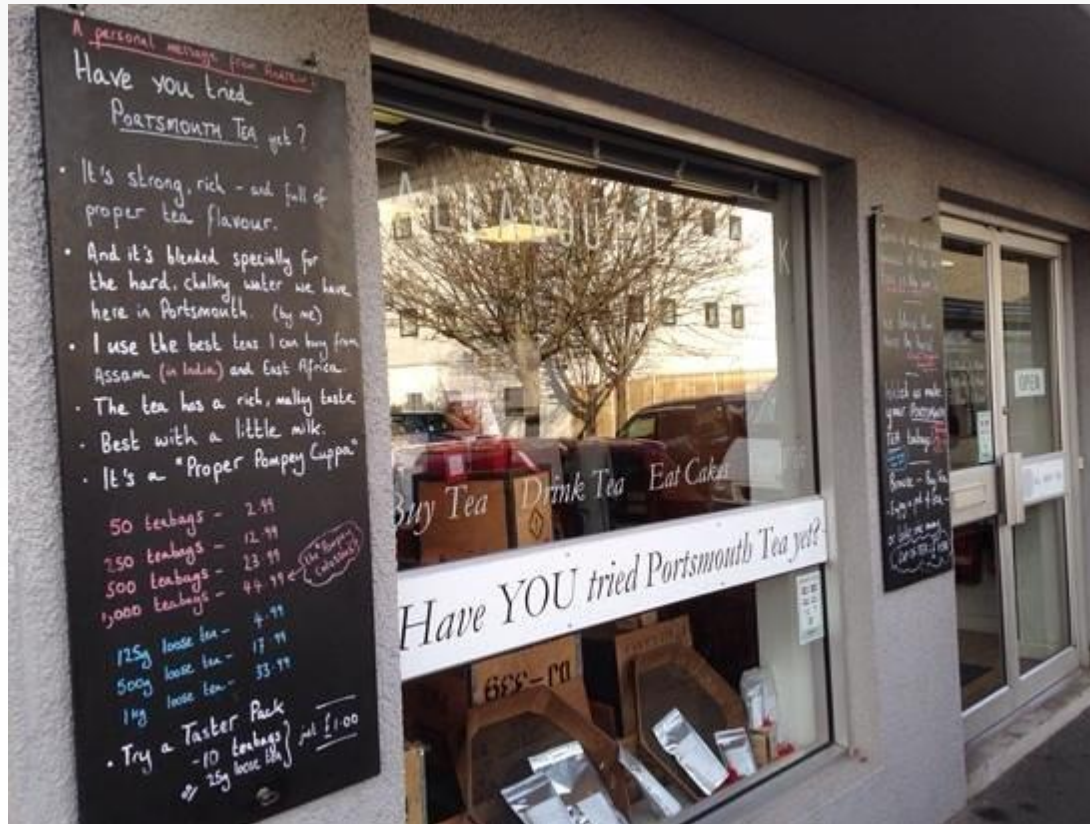 A personal message from Andrew:
Have YOU tried
PORTSMOUTH TEA yet?
• It's strong, rich - and full of
proper tea flavour.
• And it's blended specially for
the hard, chalky water we have
here in Portsmouth. (by me)
• I use the best teas I can buy from
Assam (in India) and East Africa.
• The tea has a rich, malty taste
• Best with a little milk.
• It's a "Proper Pompey Cuppa"
50 teabags - 2.99
250 teabags - 12.99
500 teabags - 23.99
1,000 teabags - 44.99 ← The "Pompey Colossus"!
125g loose tea - 4.99
500g loose tea - 17.99
1kg loose tea - 33.99
• Try a Taster Pack
- 10 teabags } just £1.00
or 25g loose tea
ALL ABOUT
Buy Tea Drink Tea Eat Cakes
Have YOU tried Portsmouth Tea yet?
DJ-339
Watch us make
your PORTSMOUTH
TEA teabags
Browse - Buy Tea
- Enjoy a pot of tea -
OPEN